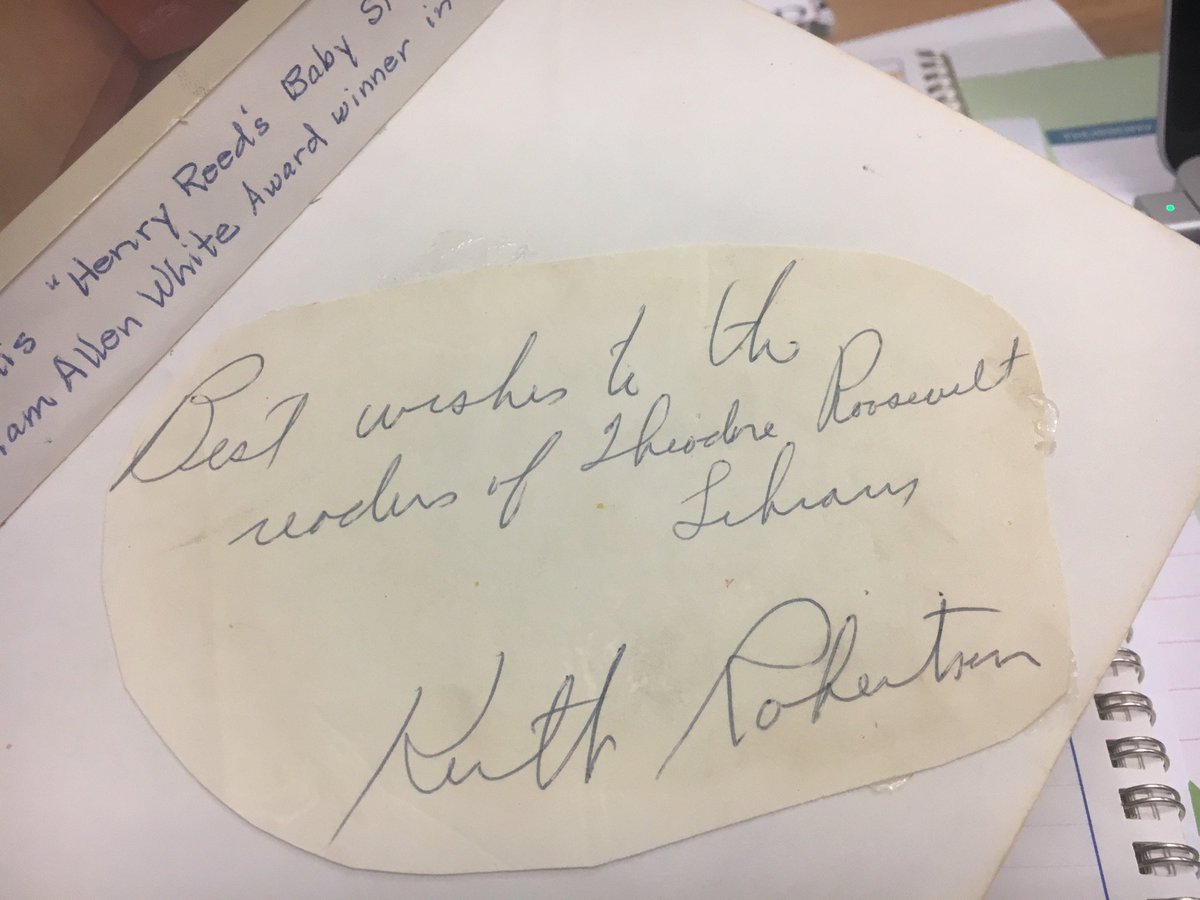 is "Henry Reed's Baby S
iam Allen White Award winner in
Best wishes to the
readers of Theodore Roosevelt
Library
Keith Robertson